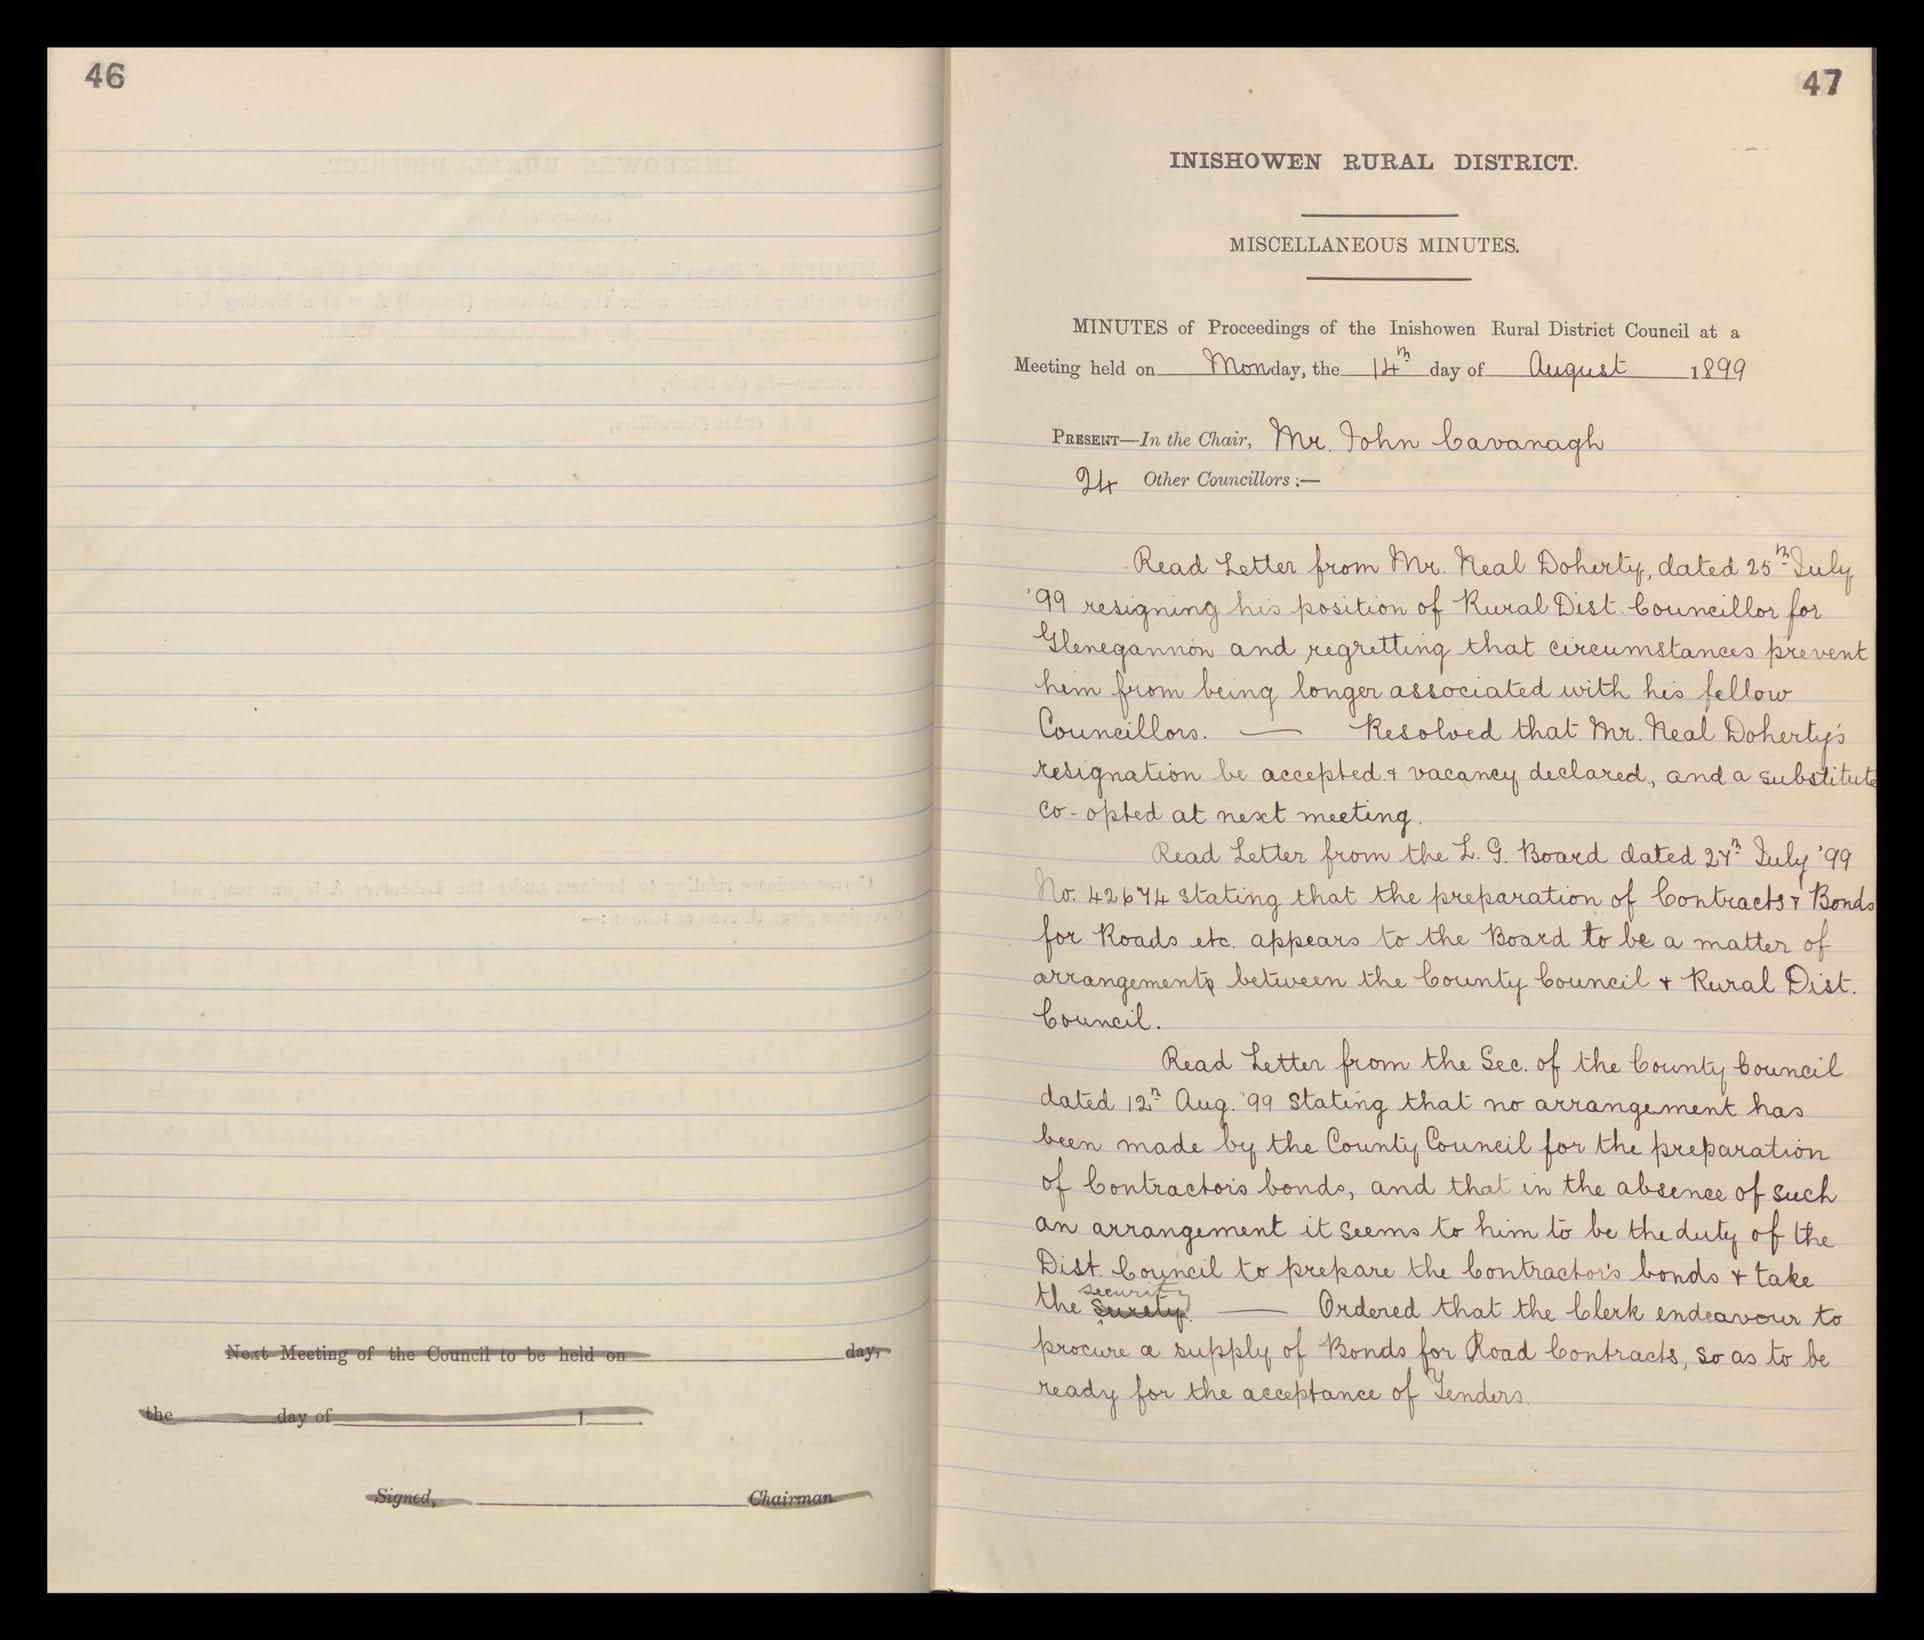 46
Next Meeting of the Council to be held on day,
the day of 1 .
Signed, Chairman
47
INISHOWEN RURAL DISTRICT.
MISCELLANEOUS MINUTES.
MINUTES of Proceedings of the Inishowen Rural District Council at a
Meeting held on Monday, the 14th day of August 1899
PRESENT—In the Chair, Mr. John Cavanagh
24 Other Councillors:—
Read Letter from Mr. Neal Doherty, dated 25th July
'99 resigning his position of Rural Dist. Councillor for
Glenegannon and regretting that circumstances prevent
him from being longer associated with his fellow
Councillors. — Resolved that Mr. Neal Doherty's
resignation be accepted & vacancy declared, and a substitute
co-opted at next meeting.
Read Letter from the L. G. Board dated 27th July '99
No. 42674 stating that the preparation of Contracts & Bonds
for Roads etc. appears to the Board to be a matter of
arrangement between the County Council & Rural Dist.
Council.
Read Letter from the Sec. of the County Council
dated 12th Aug. '99 stating that no arrangement has
been made by the County Council for the preparation
of Contractors bonds, and that in the absence of such
an arrangement it seems to him to be the duty of the
Dist. Council to prepare the Contractor's bonds & take
security
the Surety. — Ordered that the Clerk endeavour to
procure a supply of Bonds for Road Contracts, so as to be
ready for the acceptance of Tenders.